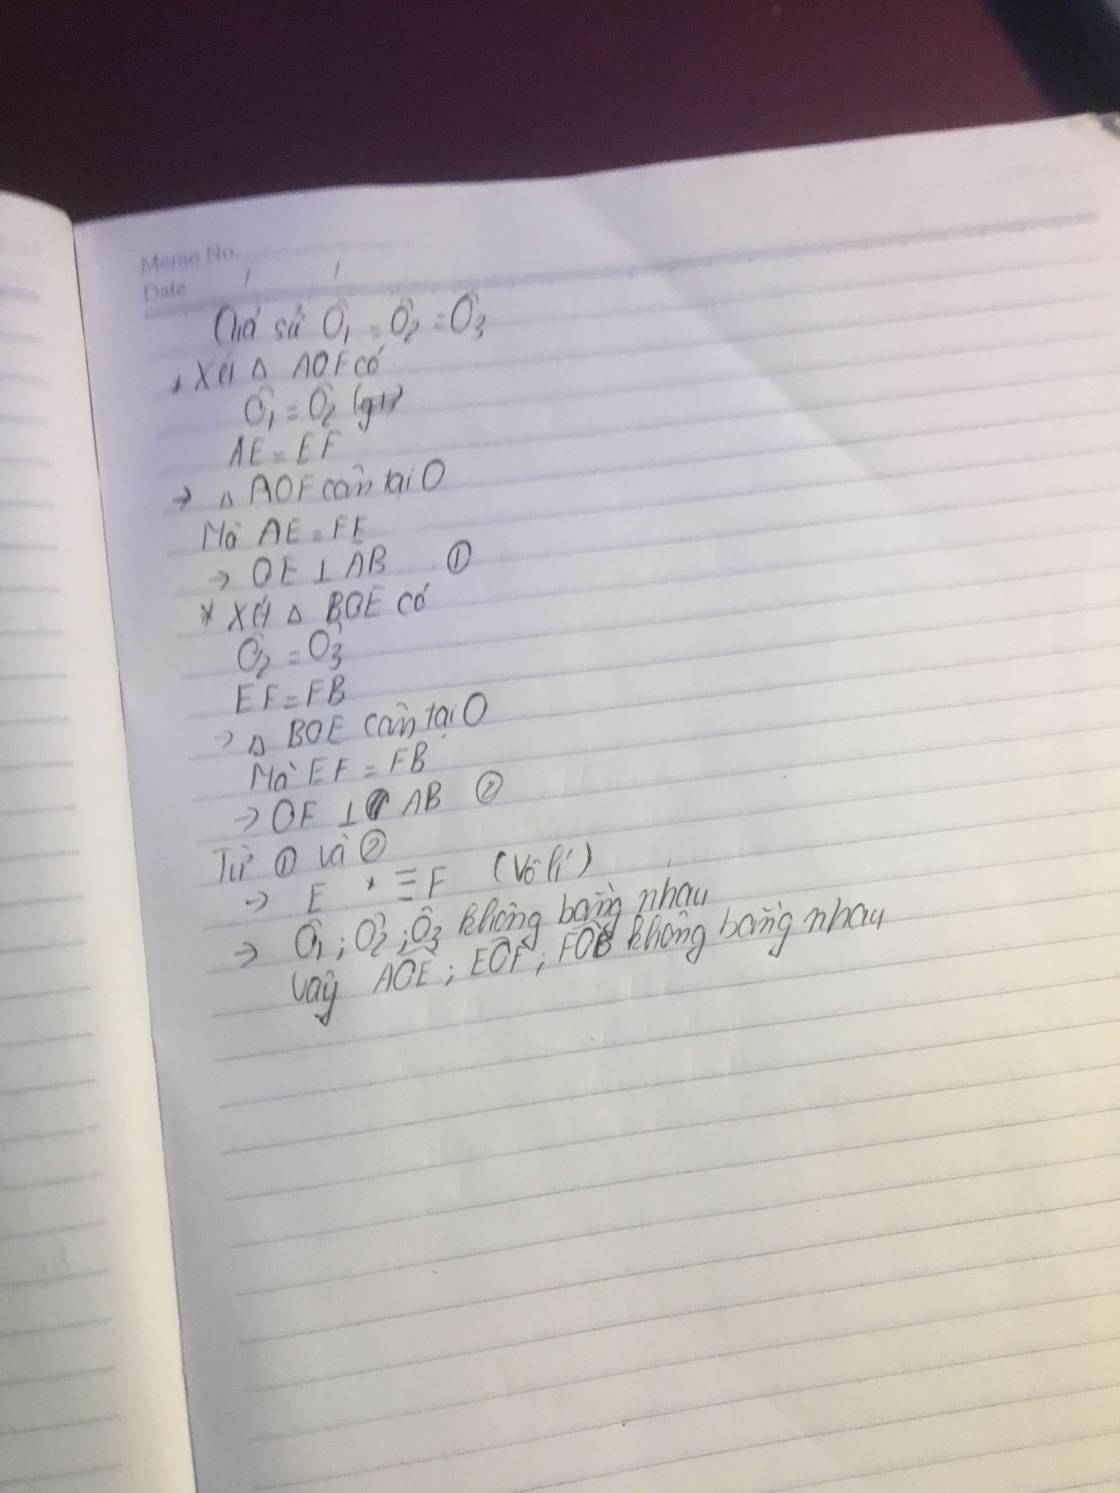 Memo No.
Date / /
Giả sử Ô₁ = Ô₂ = Ô₃
* Xét △ AOF có
Ô₁ = Ô₂ (gt)
AE = EF
→ △ AOF cân tại O
Mà AE = FE
→ OE ⊥ AB ①
* Xét △ BOE có
Ô₂ = Ô₃
EF = FB
→ △ BOE cân tại O
Mà EF = FB
→ OF ⊥ AB ②
Từ ① và ②
→ E ≡ F (vô lí)
→ Ô₁ ; Ô₂ ; Ô₃ không bằng nhau
Vậy AÔE ; EÔF ; FÔB không bằng nhau